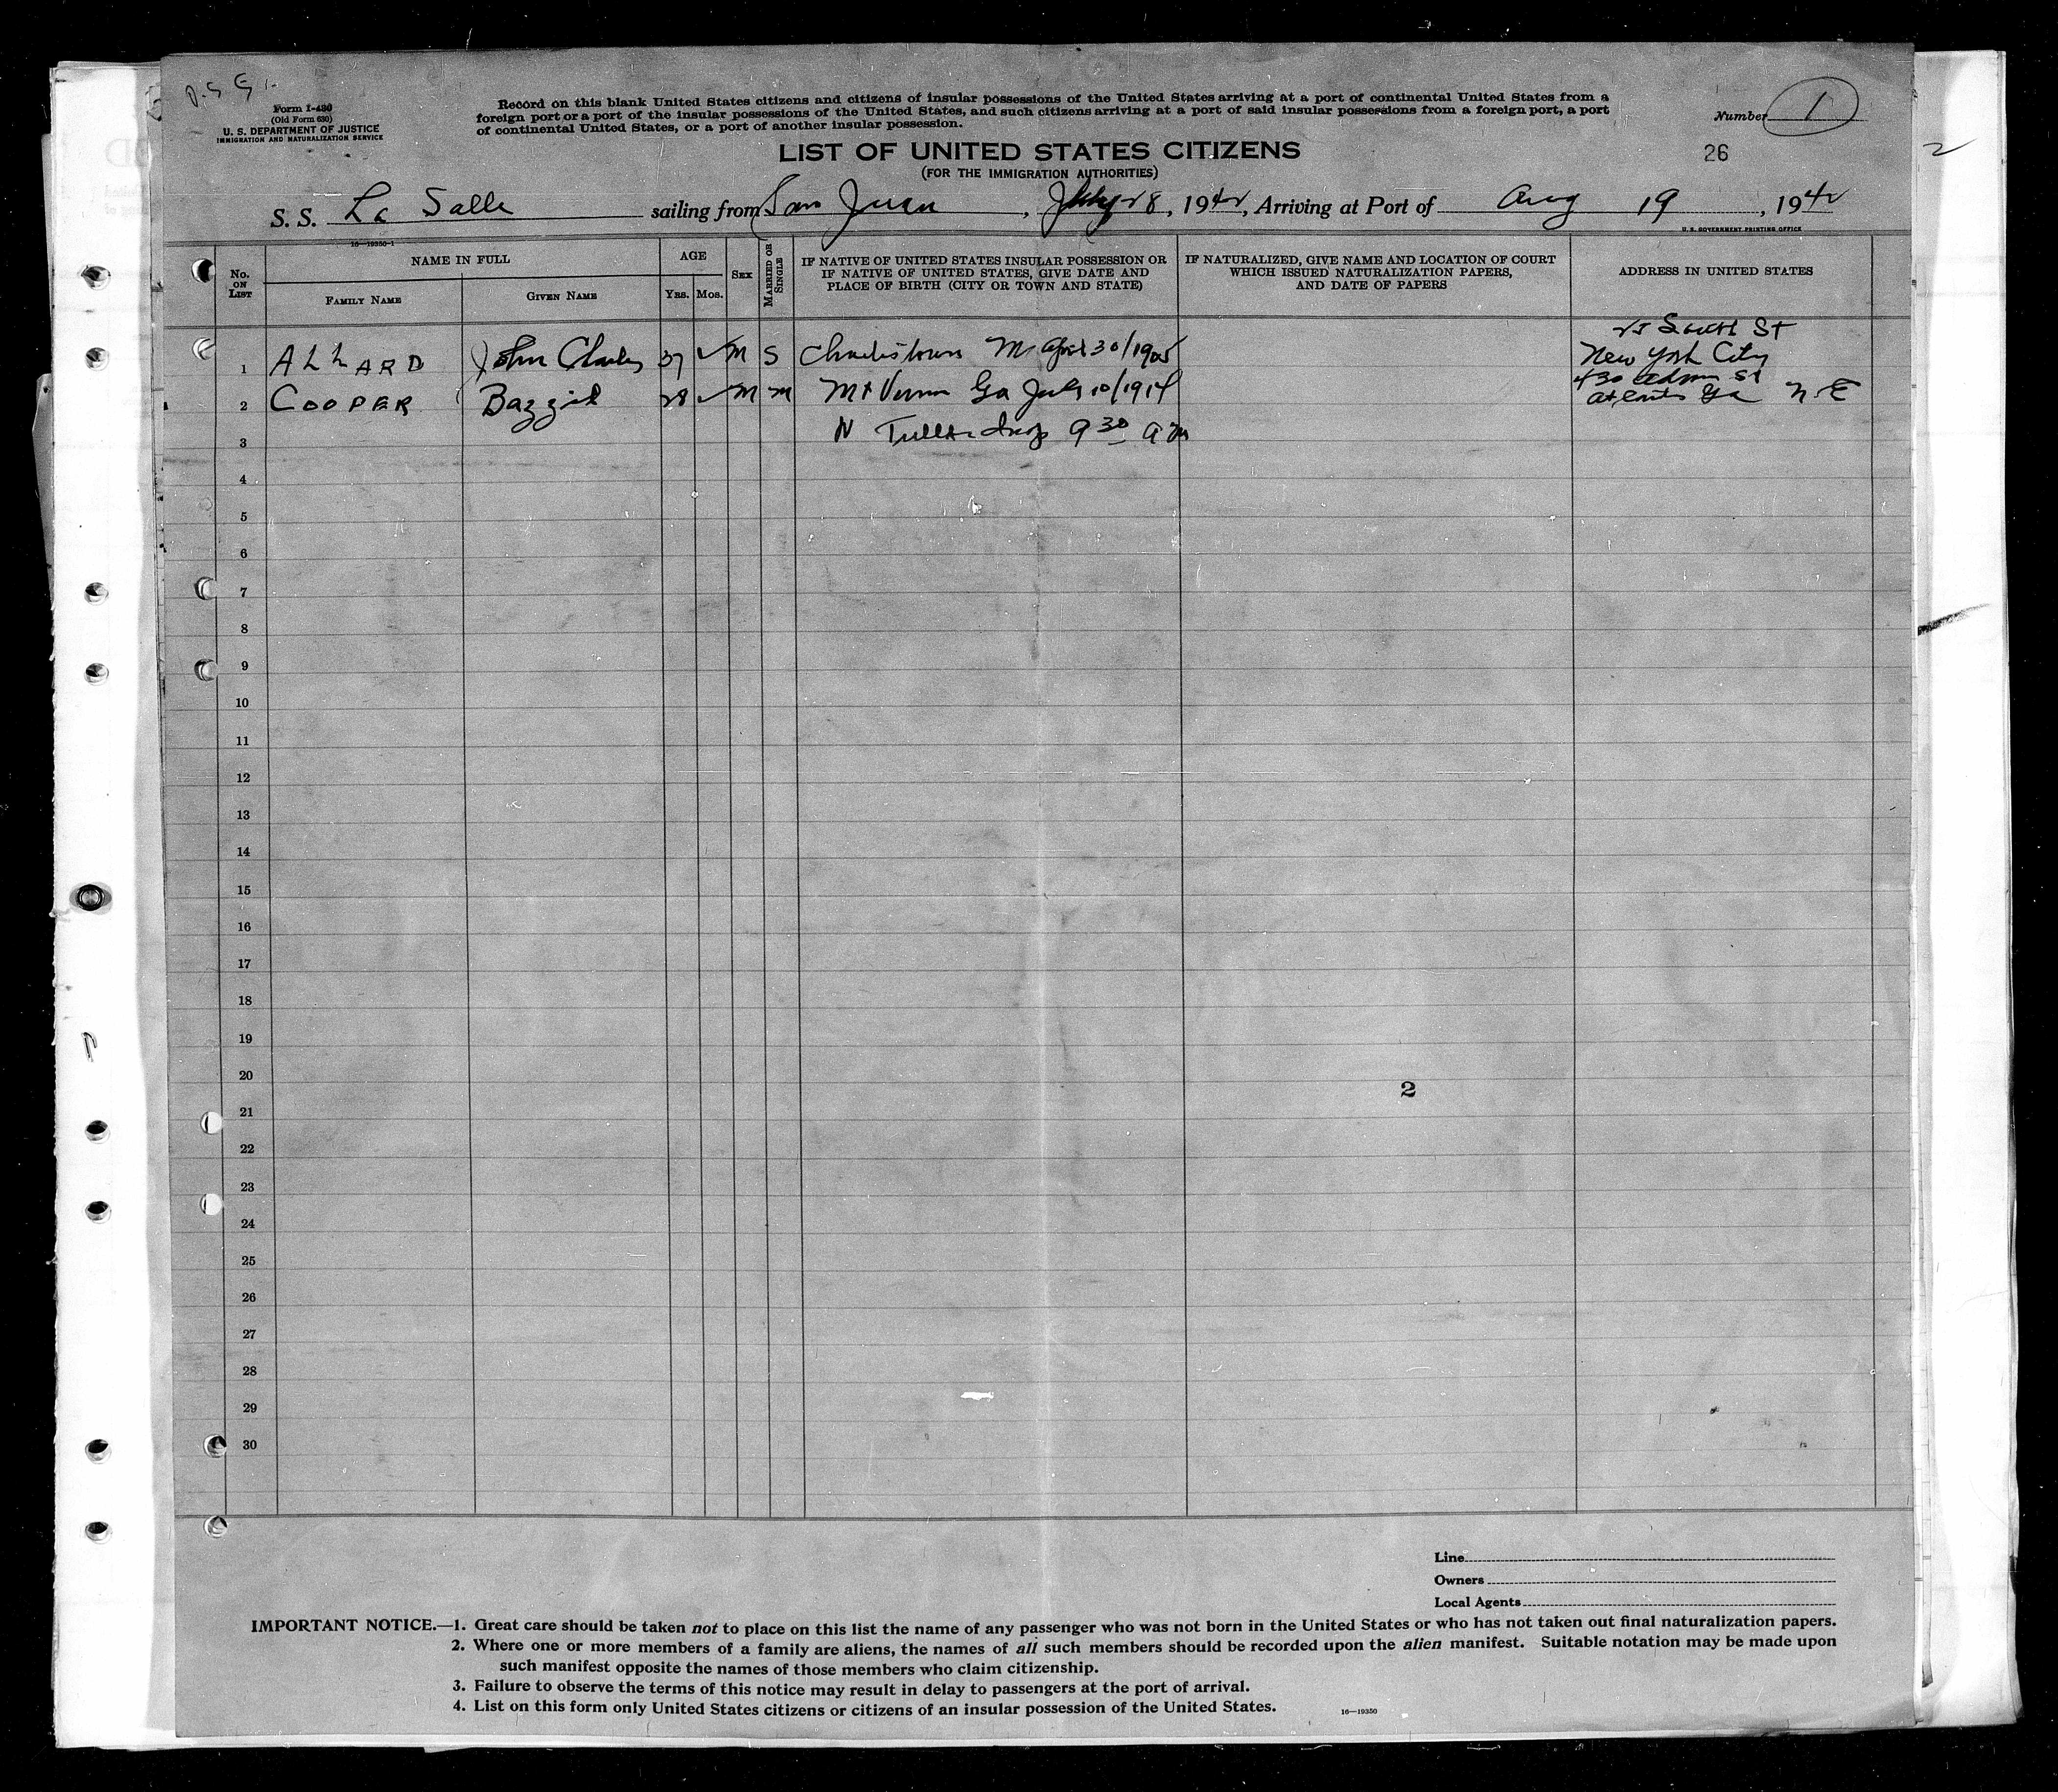 Form I-430
(Old Form 630)
U. S. DEPARTMENT OF JUSTICE
IMMIGRATION AND NATURALIZATION SERVICE
Record on this blank United States citizens and citizens of insular possessions of the United States arriving at a port of continental United States from a
foreign port or a port of the insular possessions of the United States, and such citizens arriving at a port of said insular possessions from a foreign port, a port
of continental United States, or a port of another insular possession.
Number 1
LIST OF UNITED STATES CITIZENS
26
2
(FOR THE IMMIGRATION AUTHORITIES)
S. S. La Salle sailing from San Juan, July 28, 1942, Arriving at Port of Aug 19, 1942
16—19350-1
U. S. GOVERNMENT PRINTING OFFICE
No. ON LIST
NAME IN FULL
FAMILY NAME
GIVEN NAME
AGE
YRS.
MOS.
SEX
MARRIED OR SINGLE
IF NATIVE OF UNITED STATES INSULAR POSSESSION OR
IF NATIVE OF UNITED STATES, GIVE DATE AND
PLACE OF BIRTH (CITY OR TOWN AND STATE)
IF NATURALIZED, GIVE NAME AND LOCATION OF COURT
WHICH ISSUED NATURALIZATION PAPERS,
AND DATE OF PAPERS
ADDRESS IN UNITED STATES
25 South St
1 ALLARD John Charles 37 M S Charlestown April 30/1905 New York City
430 St
2 COOPER 28 M M Mt Vernon Ga July 10/1914 Atlanta Ga N.E
3 N 9 30 am
4
5
6
7
8
9
10
11
12
13
14
15
16
17
18
19
20
2
21
22
23
24
25
26
27
28
29
30
Line
Owners
Local Agents
IMPORTANT NOTICE.—1. Great care should be taken not to place on this list the name of any passenger who was not born in the United States or who has not taken out final naturalization papers.
2. Where one or more members of a family are aliens, the names of all such members should be recorded upon the alien manifest. Suitable notation may be made upon
such manifest opposite the names of those members who claim citizenship.
3. Failure to observe the terms of this notice may result in delay to passengers at the port of arrival.
4. List on this form only United States citizens or citizens of an insular possession of the United States.
16—19350